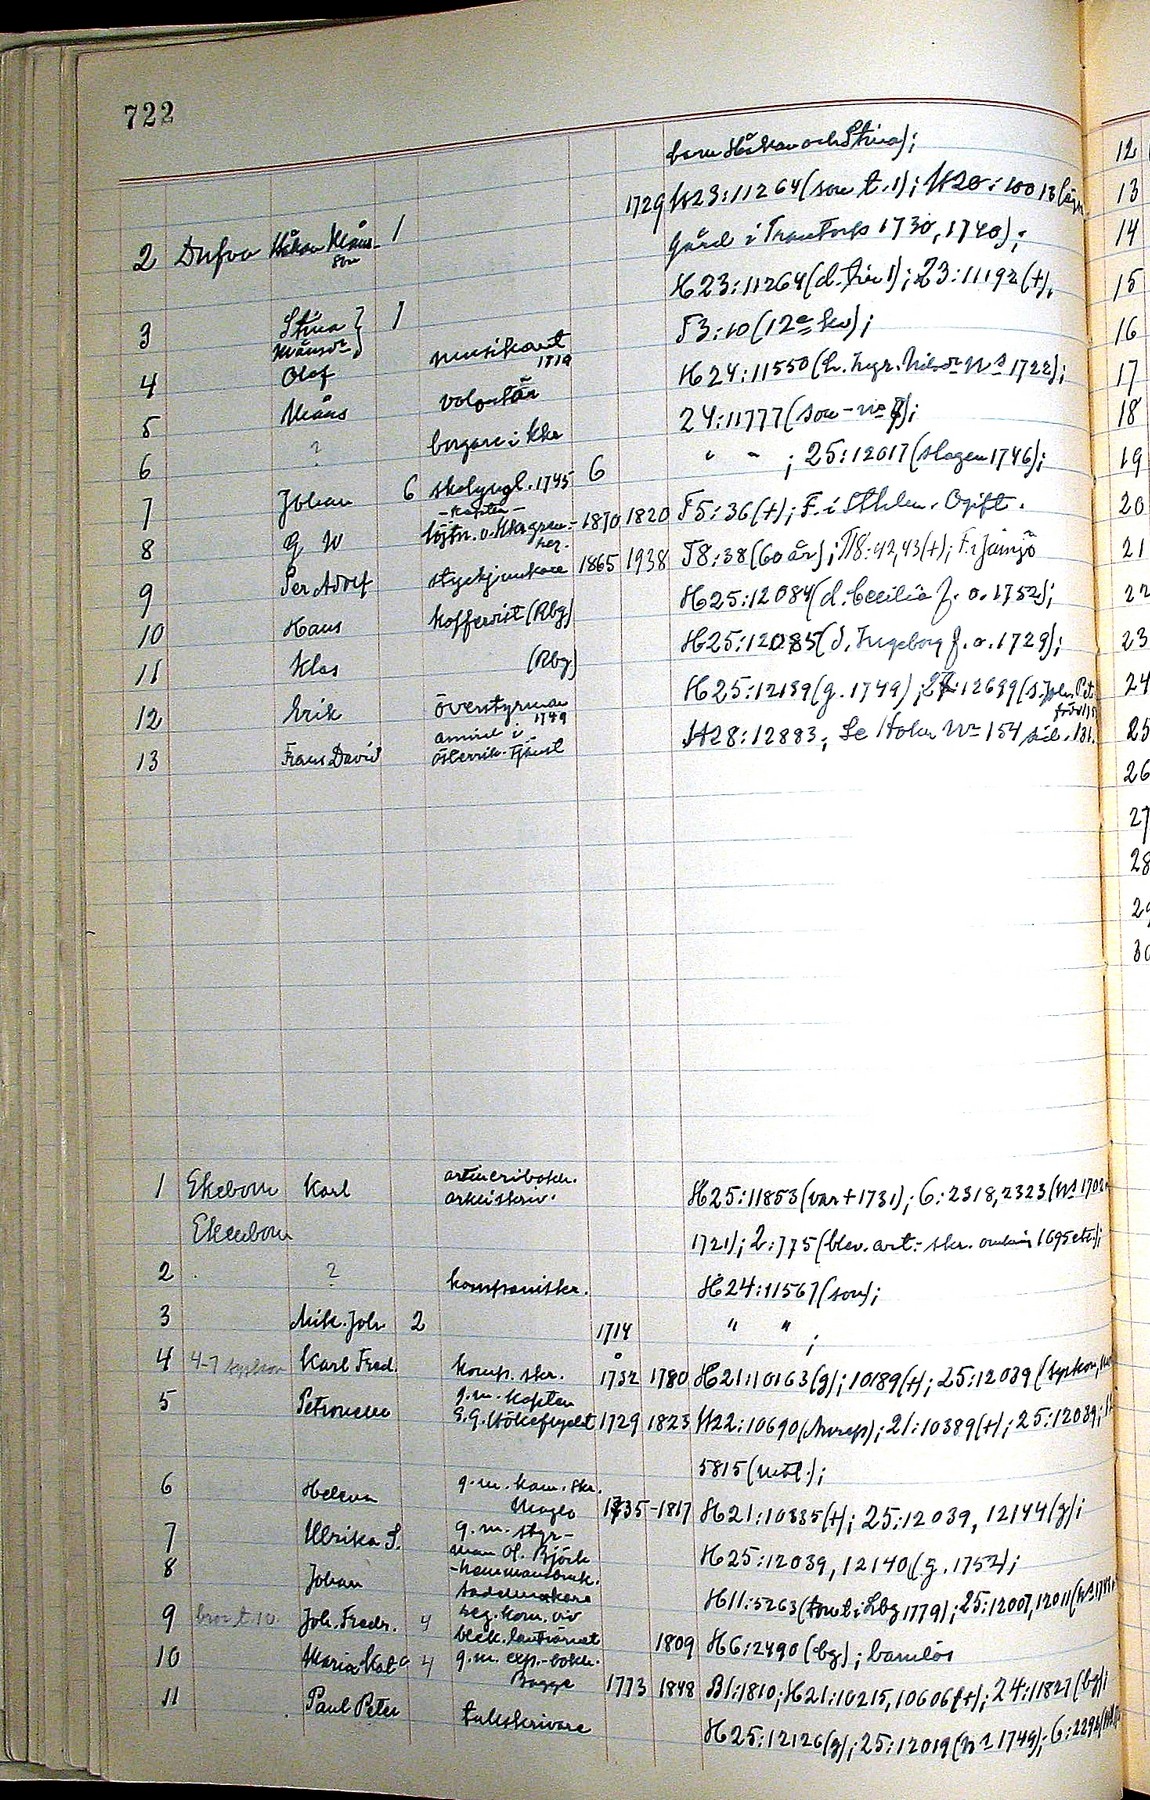 722
barn Håkan och Stina);
1729 H23:11264 (son t. 1); H20:10013
2 Dufva Håkan Måns-son 1 gård i Tromtorp 1730, 1740);
H23:11264 (d. 1); 23:11192 (+).
3 Stina Månsdr } 1 F3:10 (12e kv);
4 Olof musikant 1819 H24:11550 (h. Ingr. Nilsdr Ns 1722);
5 Måns volontär 24:11777 (son - no 7);
6 ? borgare i Kkr " " ; 25:12017 (slagen 1746);
7 Johan 6 skolyngl. 1745 6
8 G W -kapten- löjtn. o. 1870 1820 F5:36 (+); F. i Sthlm. Ogift.
9 Per Adolf styckjunkare 1865 1938 F8:38 (60 år); F18:42,43 (+); F. i Jämjö
10 Hans kofferist (Rbg) H25:12084 (d. Cecilia f. o. 1752);
11 Klas (Rbg) H25:12085 (d. Ingeborg f. o. 1729);
12 Erik överstyrman 1749 H25:12189 (g. 1749); 27:12699 (s. Joh. Pet.
13 Frans David amiral i österrik. tjänst H28:12883; Se Holm No 154 sid. 131.
1 Ekebom Karl artilleribokh. arkliskriv. H25:11853 (var + 1731); 6:2318, 2323 (Ns 1702
Ekenbom 1721); 2:775 (blev art.-skr. omkring 1695 etc.);
2 ? kompaniskr. H24:11567 (son);
3 Mik. Joh 2 1714 " " ;
4 4-7 syskon Karl Fred. komp. skr. 1732 1780 H21:10163 (g); 10189 (+); 25:12039 (syskon,
5 Petronella g. m. kapten E. G. Hökeflycht 1729 1823 H22:10690 (Anrep); 21:10389 (+); 25:12039;
5815 (utl.);
6 Helena g. m. kam. skr. Moglo 1735-1817 H21:10335 (+); 25:12039, 12144 (g);
7 Ulrika S. g. m. styr-man Ol. Björk H25:12039, 12140 (g. 1752);
8 Johan sadelmakare H11:5263 (tomt i Lbg 1779); 25:12007, 12011 (Ns 1744
9 bror t. 10 Joh. Fredr. 4 reg. kom. viv blek. lantvärnet 1809 H6:2490 (bg); barnlös
10 Maria Kat:a 4 g. m. exp.-bokh. Bagge 1773 1848 B1:1810; H21:10215, 10606 (+); 24:11827 (bg);
11 Paul Peter tullskrivare H25:12126 (g); 25:12019 (Ns 1749); 6:2292
12
13
14
15
16
17
18
19
20
21
22
23
24
25
26
27
28
29
30